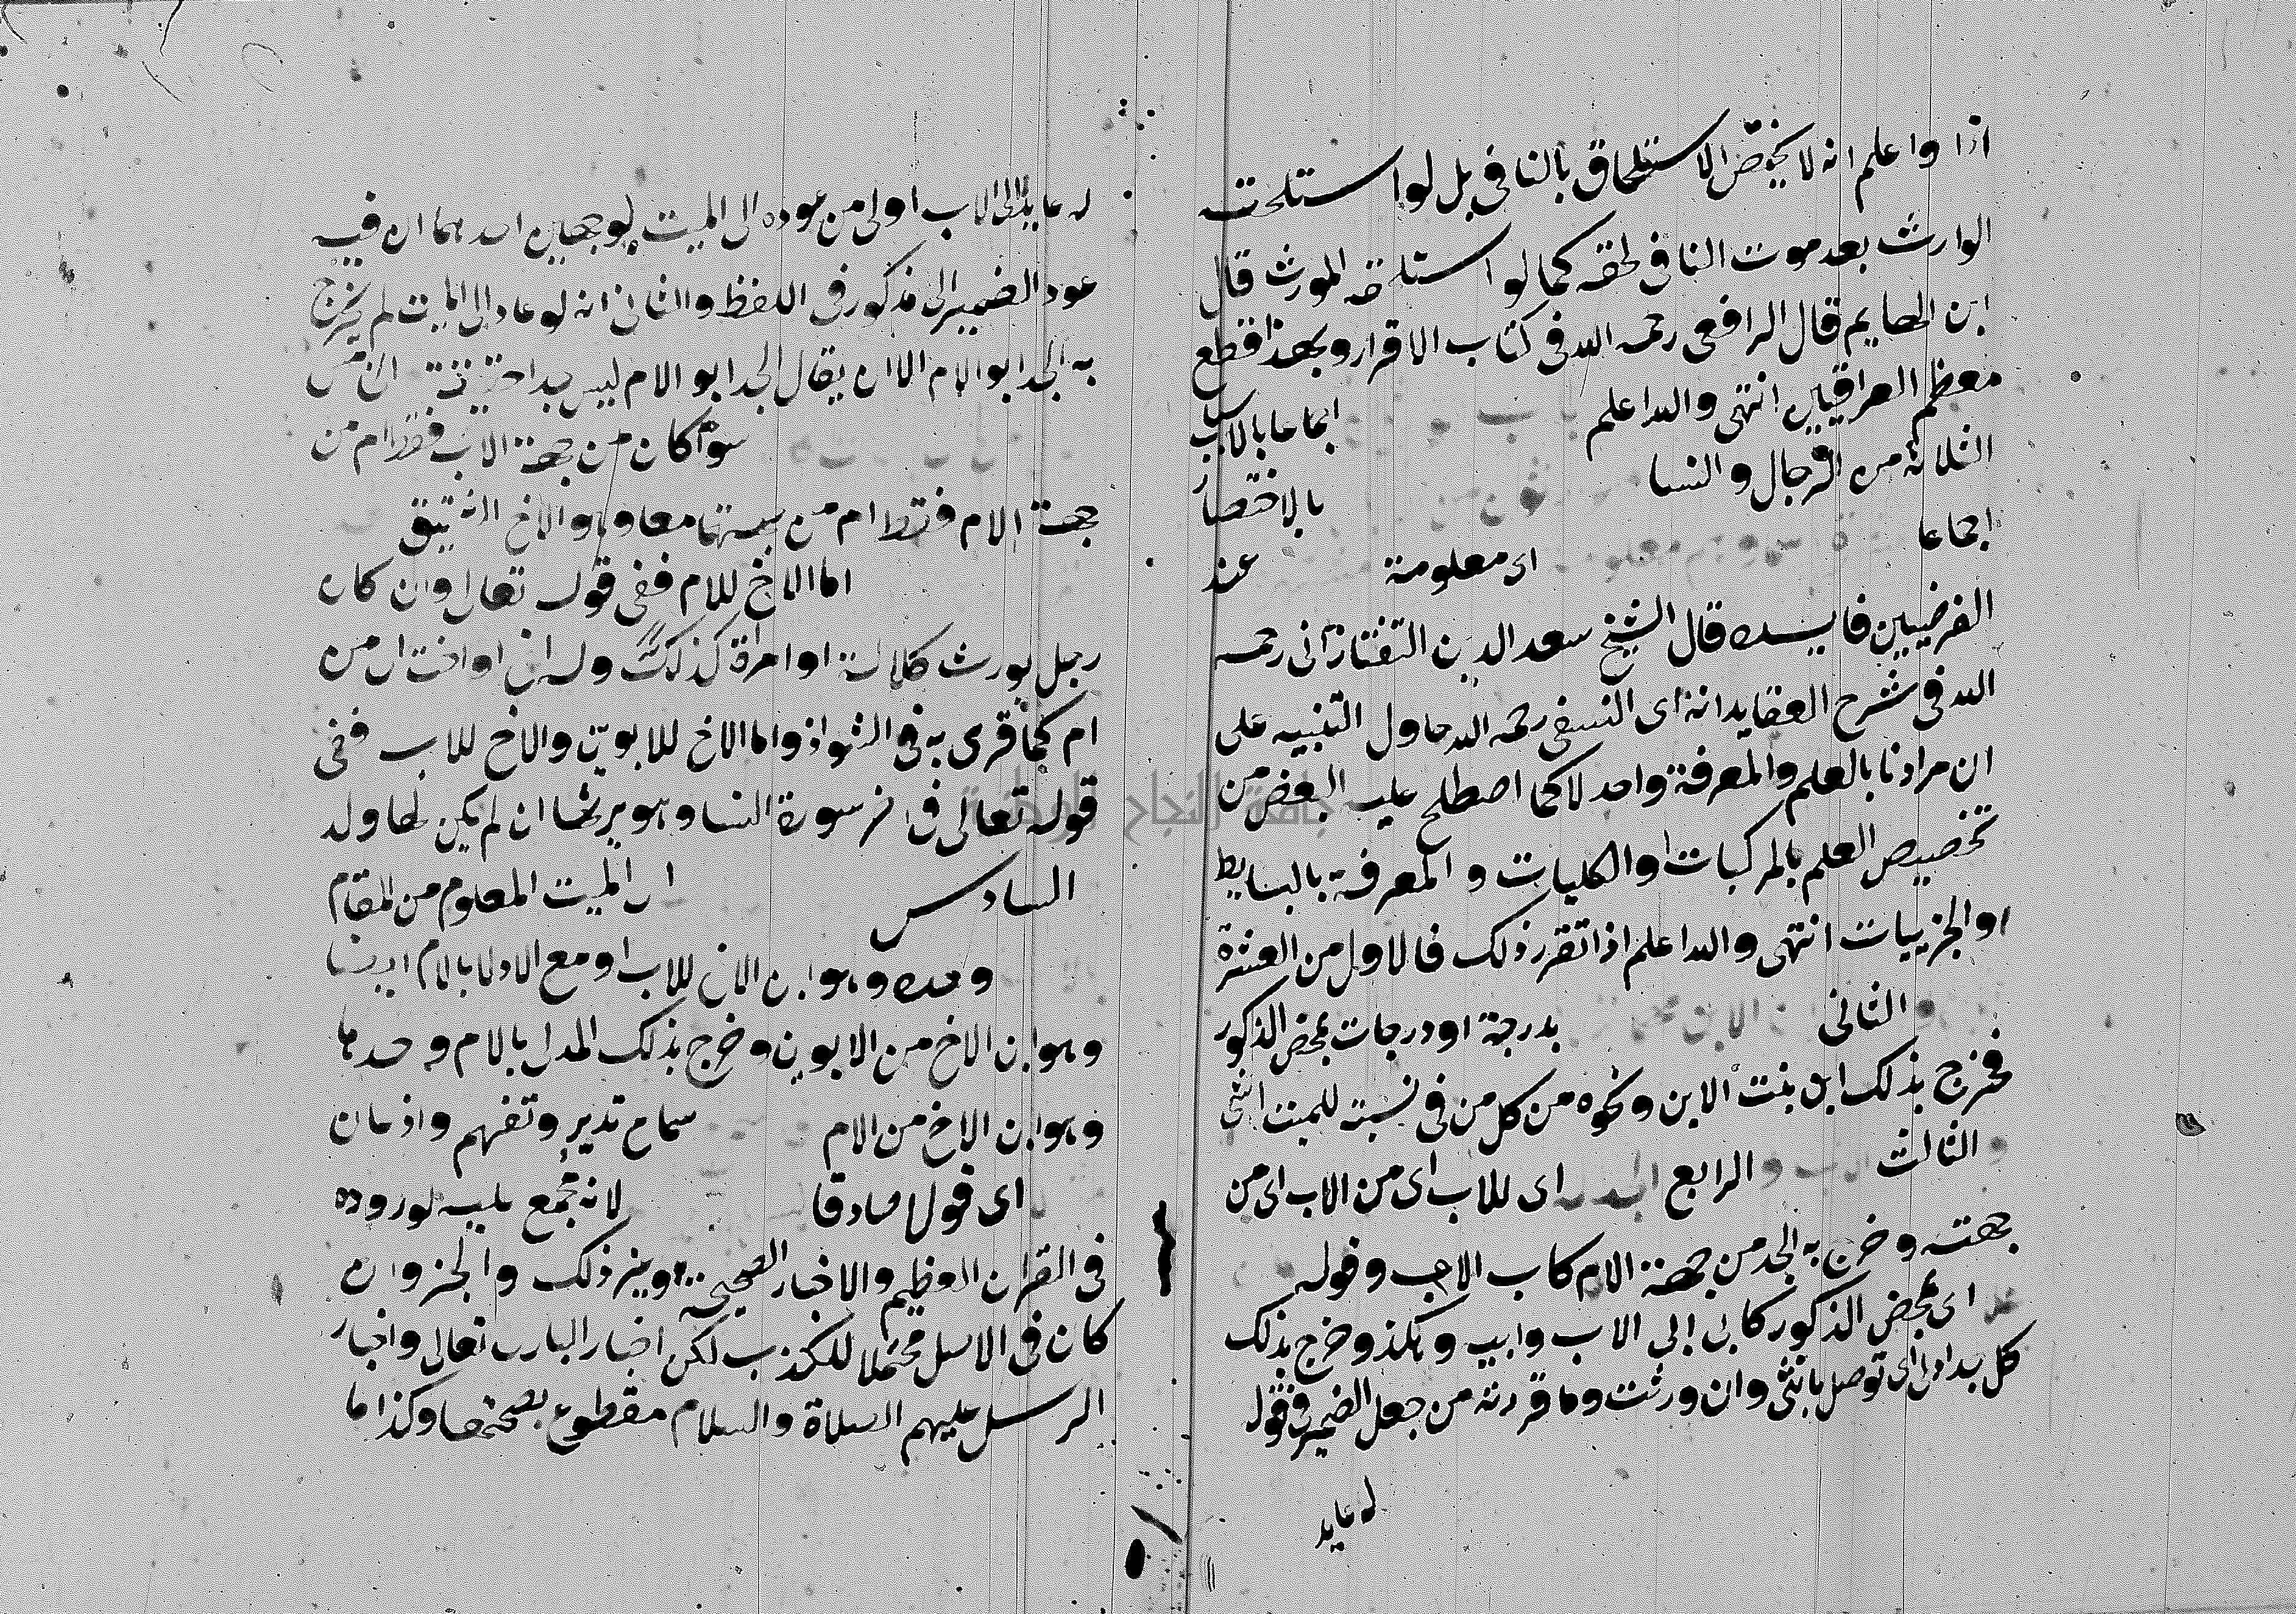 اذا واعلم انه لا يختص الاستلحاق بالنافى بل لو استلحقه
الوارث بعد موت النافى لحقه كما لو استلحقه المورث قال
ابن الهايم قال الرافعى رحمه الله فى كتاب الاقرار وبهذا قطع
معظم العراقيين انتهى والله اعلم
اجماعا بالاسباب
الثلاثة من الرجال والنسا
بالاختصار
اجماعا اى معلومة عند
الفرضيين فايـده قال الشيخ سعد الدين التفتازانى رحمه
الله فى شرح العقايد انه اى النسفى رحمه الله حاول التنبيه على
ان مرادنا بالعلم والمعرفة واحد لا كما اصطلح عليه البعض من
تخصيص العلم بالمركبات او الكليات والمعرفة بالبسايط
او الجزييات انتهى والله اعلم اذا تقرر ذلك فالاول من العشرة
والثانى ابن الابن بدرجة او درجات بمحض الذكور
فخرج بذلك ابن بنت الابن ونحوه من كل من فى نسبته للميت انثى
والثالث الاب والرابع الجد له اى للاب اى من الاب اى من
جهته وخرج به الجد من جهة الام كاب الام وقوله
اى بمحض الذكور كابى ابى الاب وابيه وهكذا وخرج بذلك
كل جد ادلى اى توصل بانثى وان ورثت وما قررته من جعل الضمير فى قوله
له عايد
له عايد الى الاب اولى من عوده الى الميت لوجهين احدهما ان فيه
عود الضمير الى مذكور فى اللفظ والثانى انه لو عاد الى الميت لم يخرج
به الجد ابو الام الا ان يقال الجد ابو الام ليس بجد حقيقة الخامس
سوا كان من جهة الاب فقط ام من
جهة الام فقط ام من جهتهما معا وهو الاخ الشقيق
اما الاخ للام ففى قوله تعالى وان كان
رجل يورث كلالة او امراة كذلك وله اخ او اخت اى من
ام كما قرى به فى الشواذ واما الاخ للابوين والاخ للاب ففى
قوله تعالى فى اخر سورة النسا وهو يرثها ان لم يكن لها ولد
السادس اى الميت المعلوم من المقام
وحده وهو ابن الاخ للاب او مع الادلا بالام ايضا
وهو ابن الاخ من الابوين وخرج بذلك المدلى بالام وحدها
وهو ابن الاخ من الام سماع تدبر وتفهم واذعان
اى قولا صادقا لانه مجمع عليه لوروده
فى القران العظيم والاخبار الصحيحة وغير ذلك والخبر وان
كان فى الاصل محتملا للكذب لكن اخبار البارى تعالى واخبار
الرسل عليهم الصلاة والسلام مقطوع بصحتها وكذا ما
جامعة النجاح الوطنية